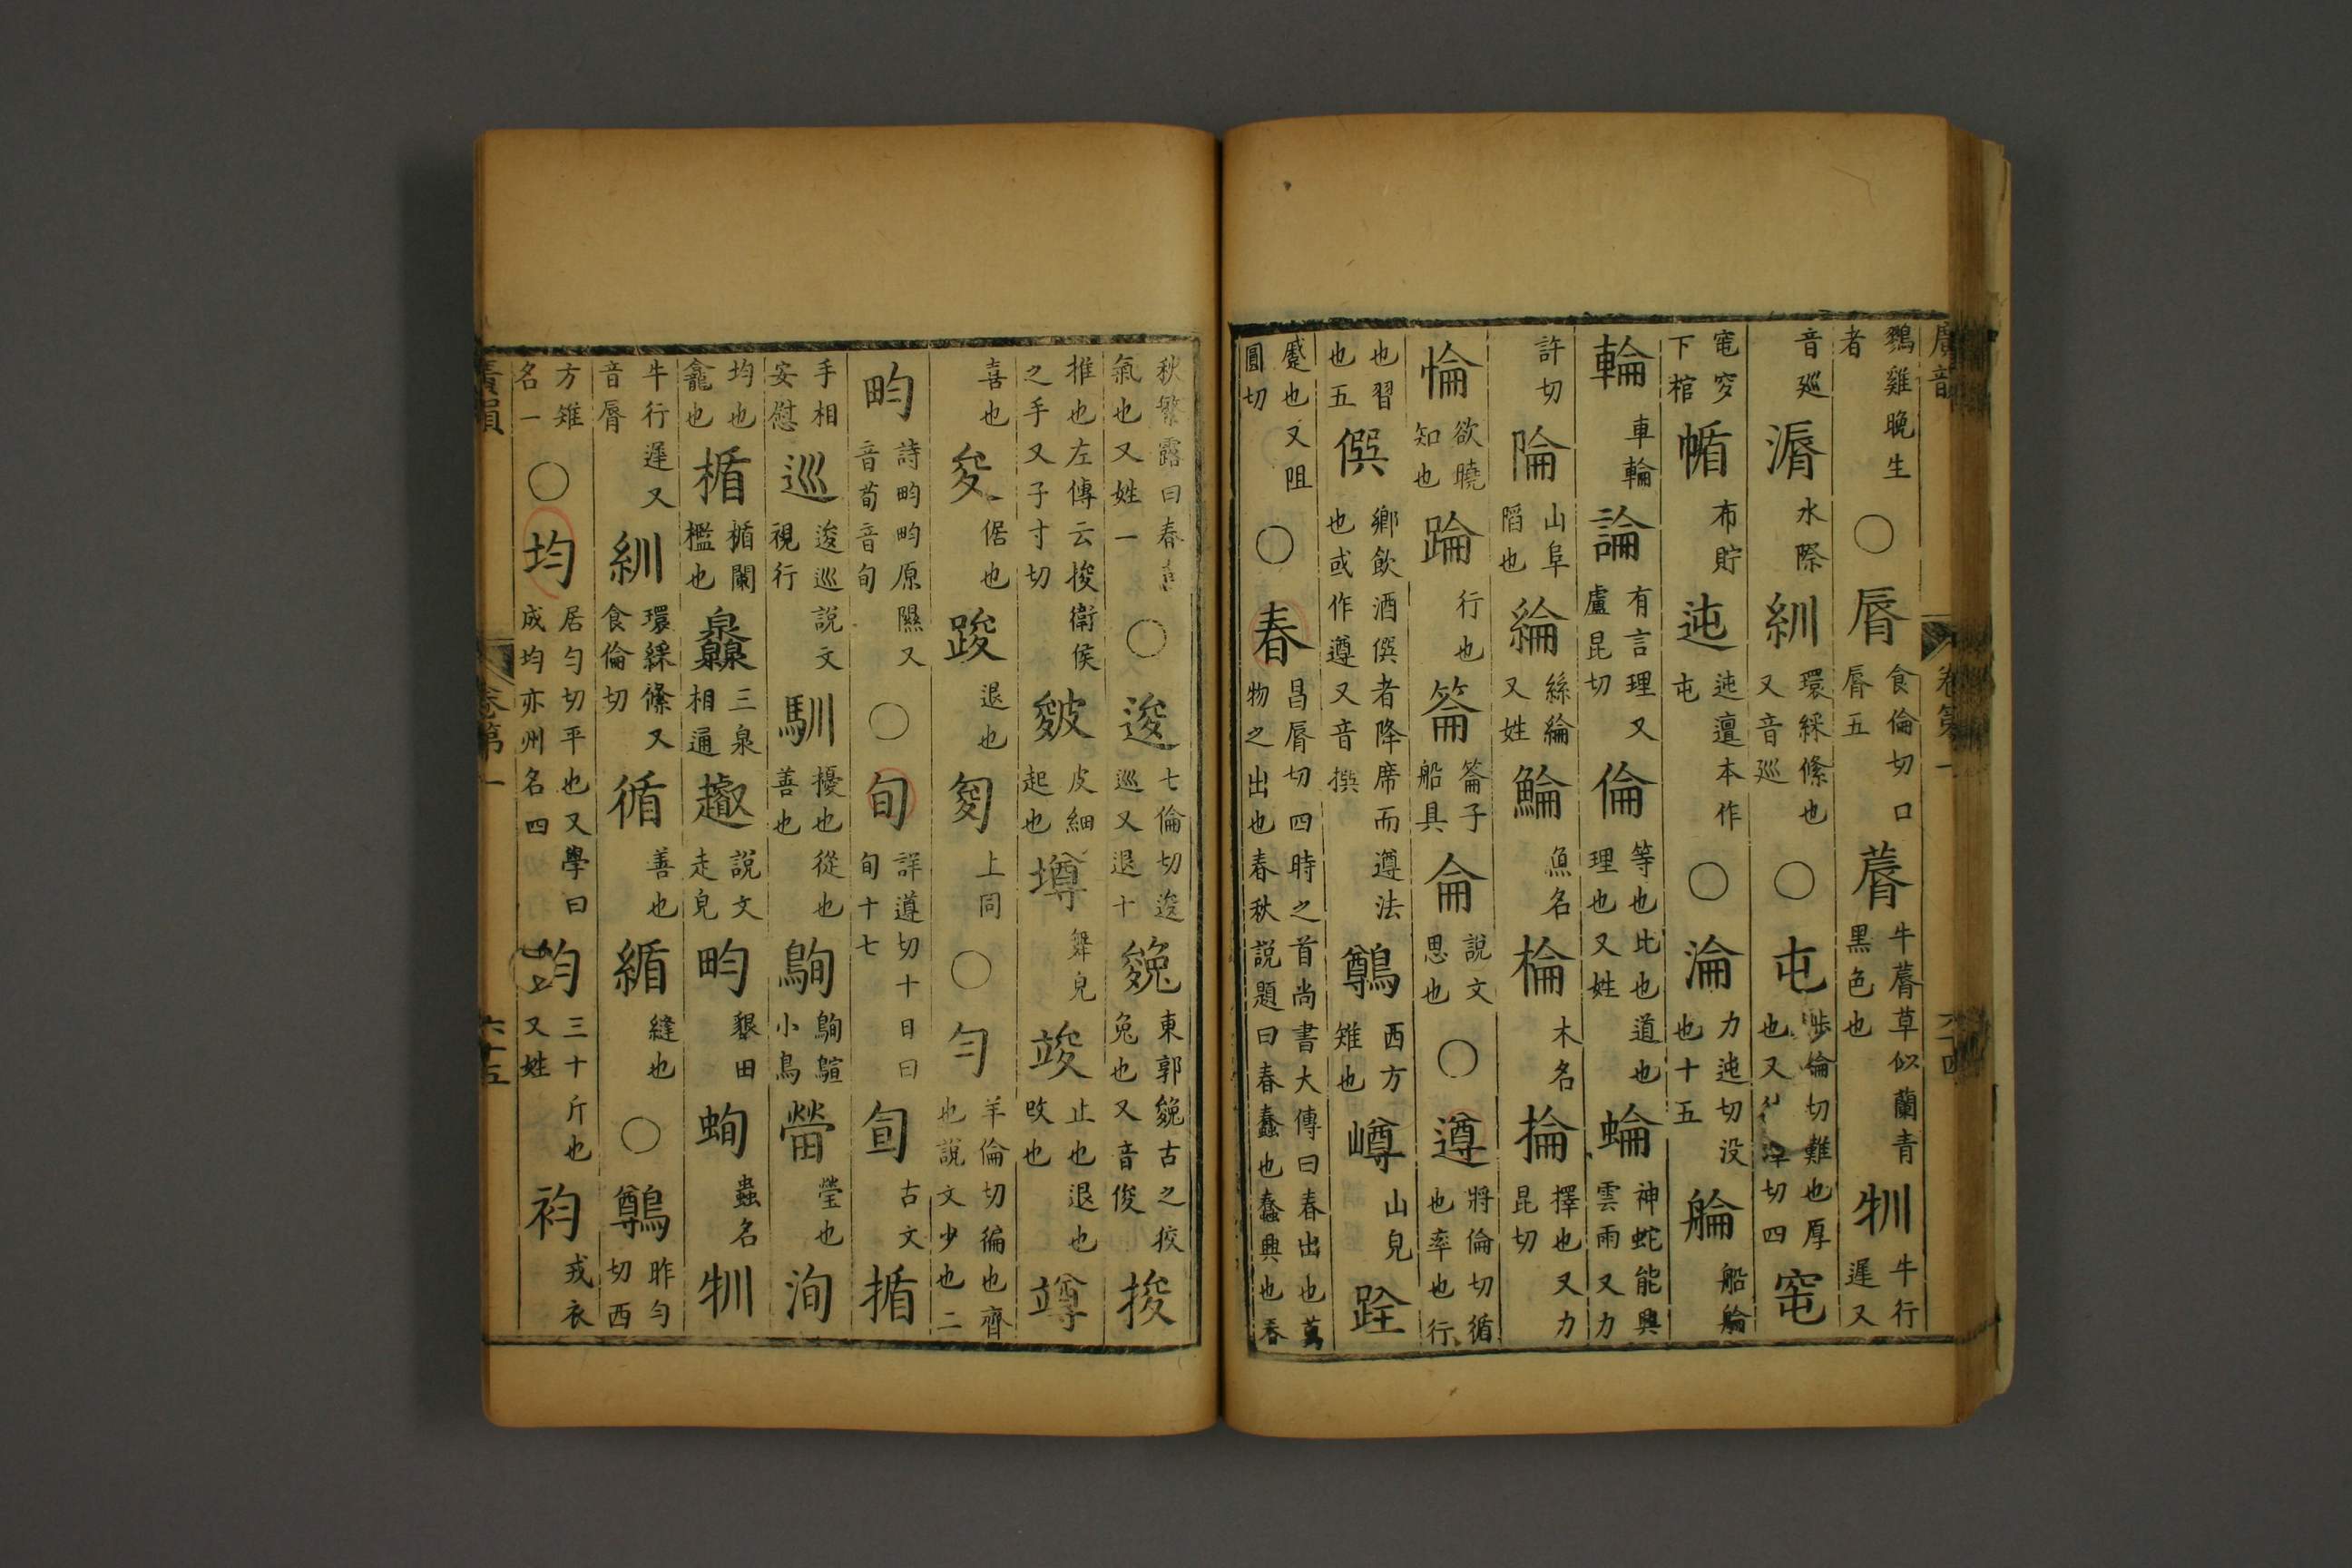 廣韻 卷第一 六十四
鷄雞晚生者 ○ 脣 食倫切口脣五 蓐 牛蓐草似蘭青黑色也 牰 牛行遲又
音巡 漘 水際 紃 環綵絛也又音巡 ○ 屯 涉倫切難也厚也又 津切四 窀
窀穸下棺 㡒 布貯 迍 迍邅本作屯 ○ 淪 力迍切没也十五 艑 船艑
輪 車輪 論 有言理又盧昆切 倫 等也比也道也理也又姓 蜦 神蛇能興雲雨又力
許切 陯 山阜陷也 綸 絲綸又姓 鯩 魚名 棆 木名 掄 擇也又力昆切
惀 欲曉知也 踚 行也 箞 箞子船具 侖 說文思也 ○ 遵 將倫切循也率也行
也習也五 僎 鄉飲酒僎者降席而遵法也或作遵又音撰 鷷 西方雉也 嶟 山皃 跧
蹙也又阻圓切 ○ 春 昌脣切四時之首尚書大傳曰春出也萬物之出也春秋說題曰春蠢也蠢興也春
秋繁露曰春喜氣也又姓一 ○ 逡 七倫切逡巡又退十 㕙 東郭㕙古之狡兔也又音俊 捘
推也左傳云捘衛侯之手又子寸切 皴 皮細起也 墫 舞皃 竣 止也退也改也 竴
喜也 夋 倨也 踆 退也 㕙 上同 ○ 勻 羊倫切徧也齊也說文少也二
畇 詩畇畇原隰又音荀音旬 ○ 旬 詳遵切十日曰旬十七 㫬 古文 揗
手相安慰 巡 逡巡說文視行 馴 擾也從也善也 鴝 鴝鶞小鳥 㽦 瑩也 洵
均也龕也 楯 楯闌檻也 灥 三泉相通 趣 說文走皃 畇 墾田 蚼 蟲名 牰
牛行遲又音脣 紃 環綵絛又食倫切 循 善也 緧 縫也 ○ 鷷 昨勻切西
方雉名一 ○ 均 居勻切平也又學曰成均亦州名四 鈞 三十斤也又姓 袀 戎衣
廣韻 卷第一 六十五